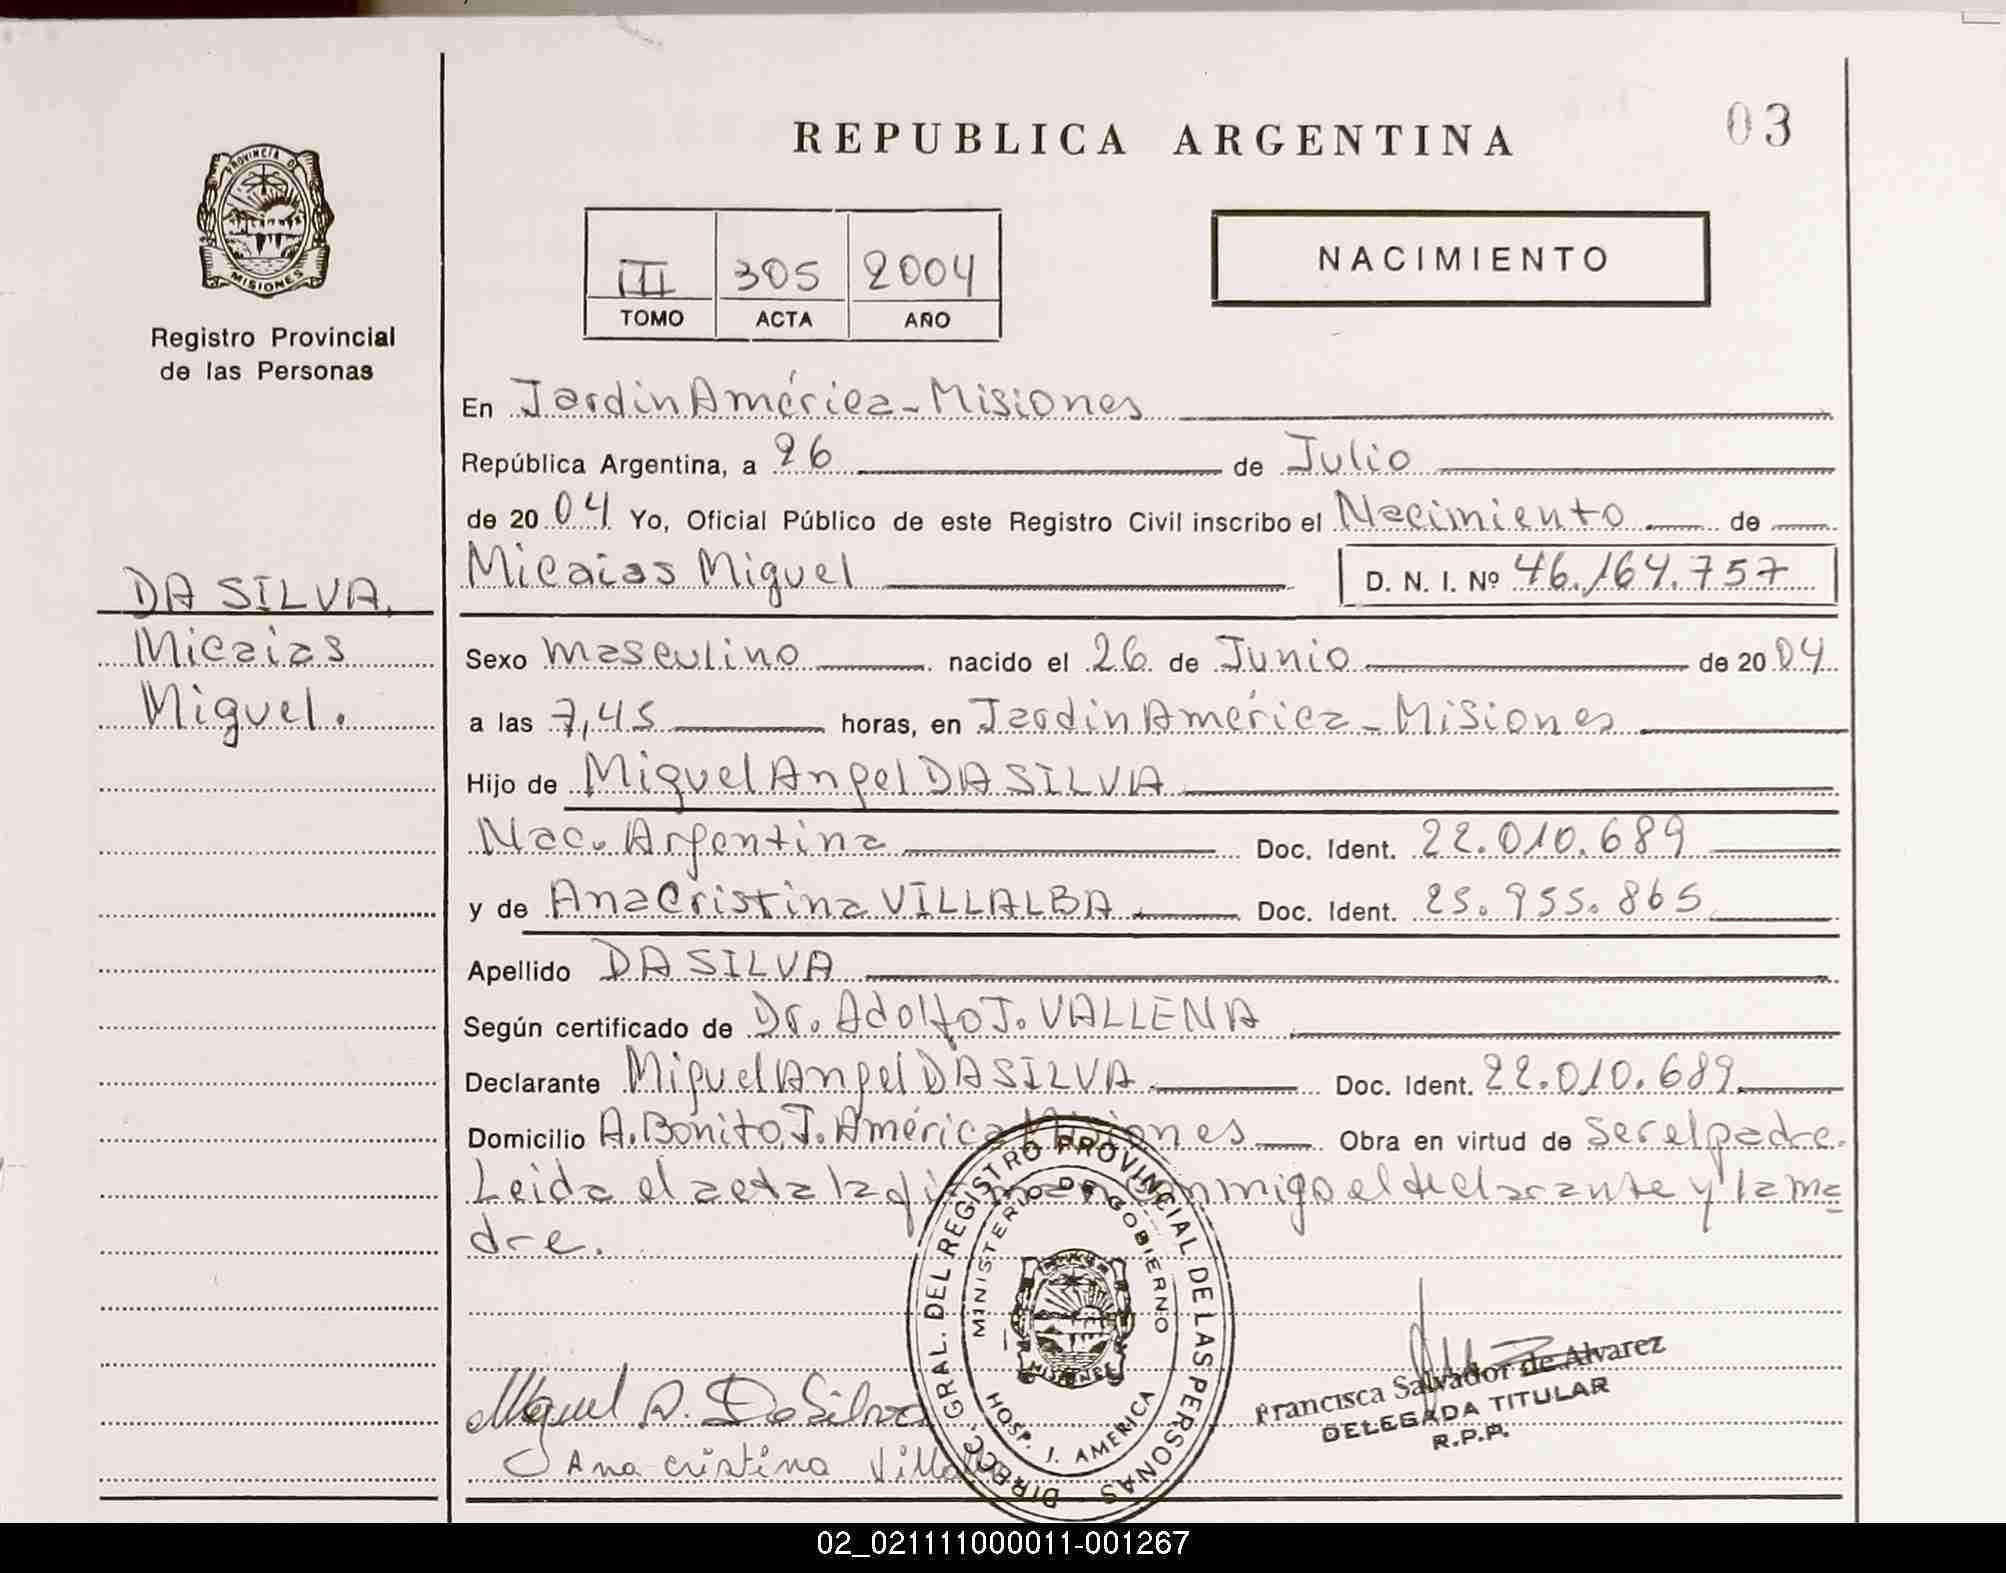 REPUBLICA ARGENTINA
03
PROVINCIA D
MISIONES
Registro Provincial
de las Personas
III 305 2004
TOMO ACTA AÑO
NACIMIENTO
En Jardin América - Misiones
República Argentina, a 26 de Julio
de 20 04 Yo, Oficial Público de este Registro Civil inscribo el Nacimiento de
Micaias Miguel D. N. I. Nº 46.164.757
DA SILVA.
Micaias
Miguel.
Sexo masculino nacido el 26 de Junio de 20 04
a las 7,45 horas, en Jardin América - Misiones
Hijo de Miguel Angel DA SILVA
Nac. Argentina Doc. Ident. 22.010.689
y de Ana Cristina VILLALBA Doc. Ident. 25.955.865
Apellido DA SILVA
Según certificado de Dr. Adolfo J. VALLENA
Declarante Miguel Angel DA SILVA Doc. Ident. 22.010.689
Domicilio A. Bonito J. América Misiones Obra en virtud de ser el padre.
Leida el acta la firman conmigo el declarante y la ma
dre.
DIRECC. GRAL. DEL REGISTRO PROVINCIAL DE LAS PERSONAS
MINISTERIO DE GOBIERNO
MISIONES
HOSP. J. AMERICA
Miguel A. Da Silva
Ana cristina Villalba
Francisca Salvador de Alvarez
DELEGADA TITULAR
R.P.P.
02_021111000011-001267